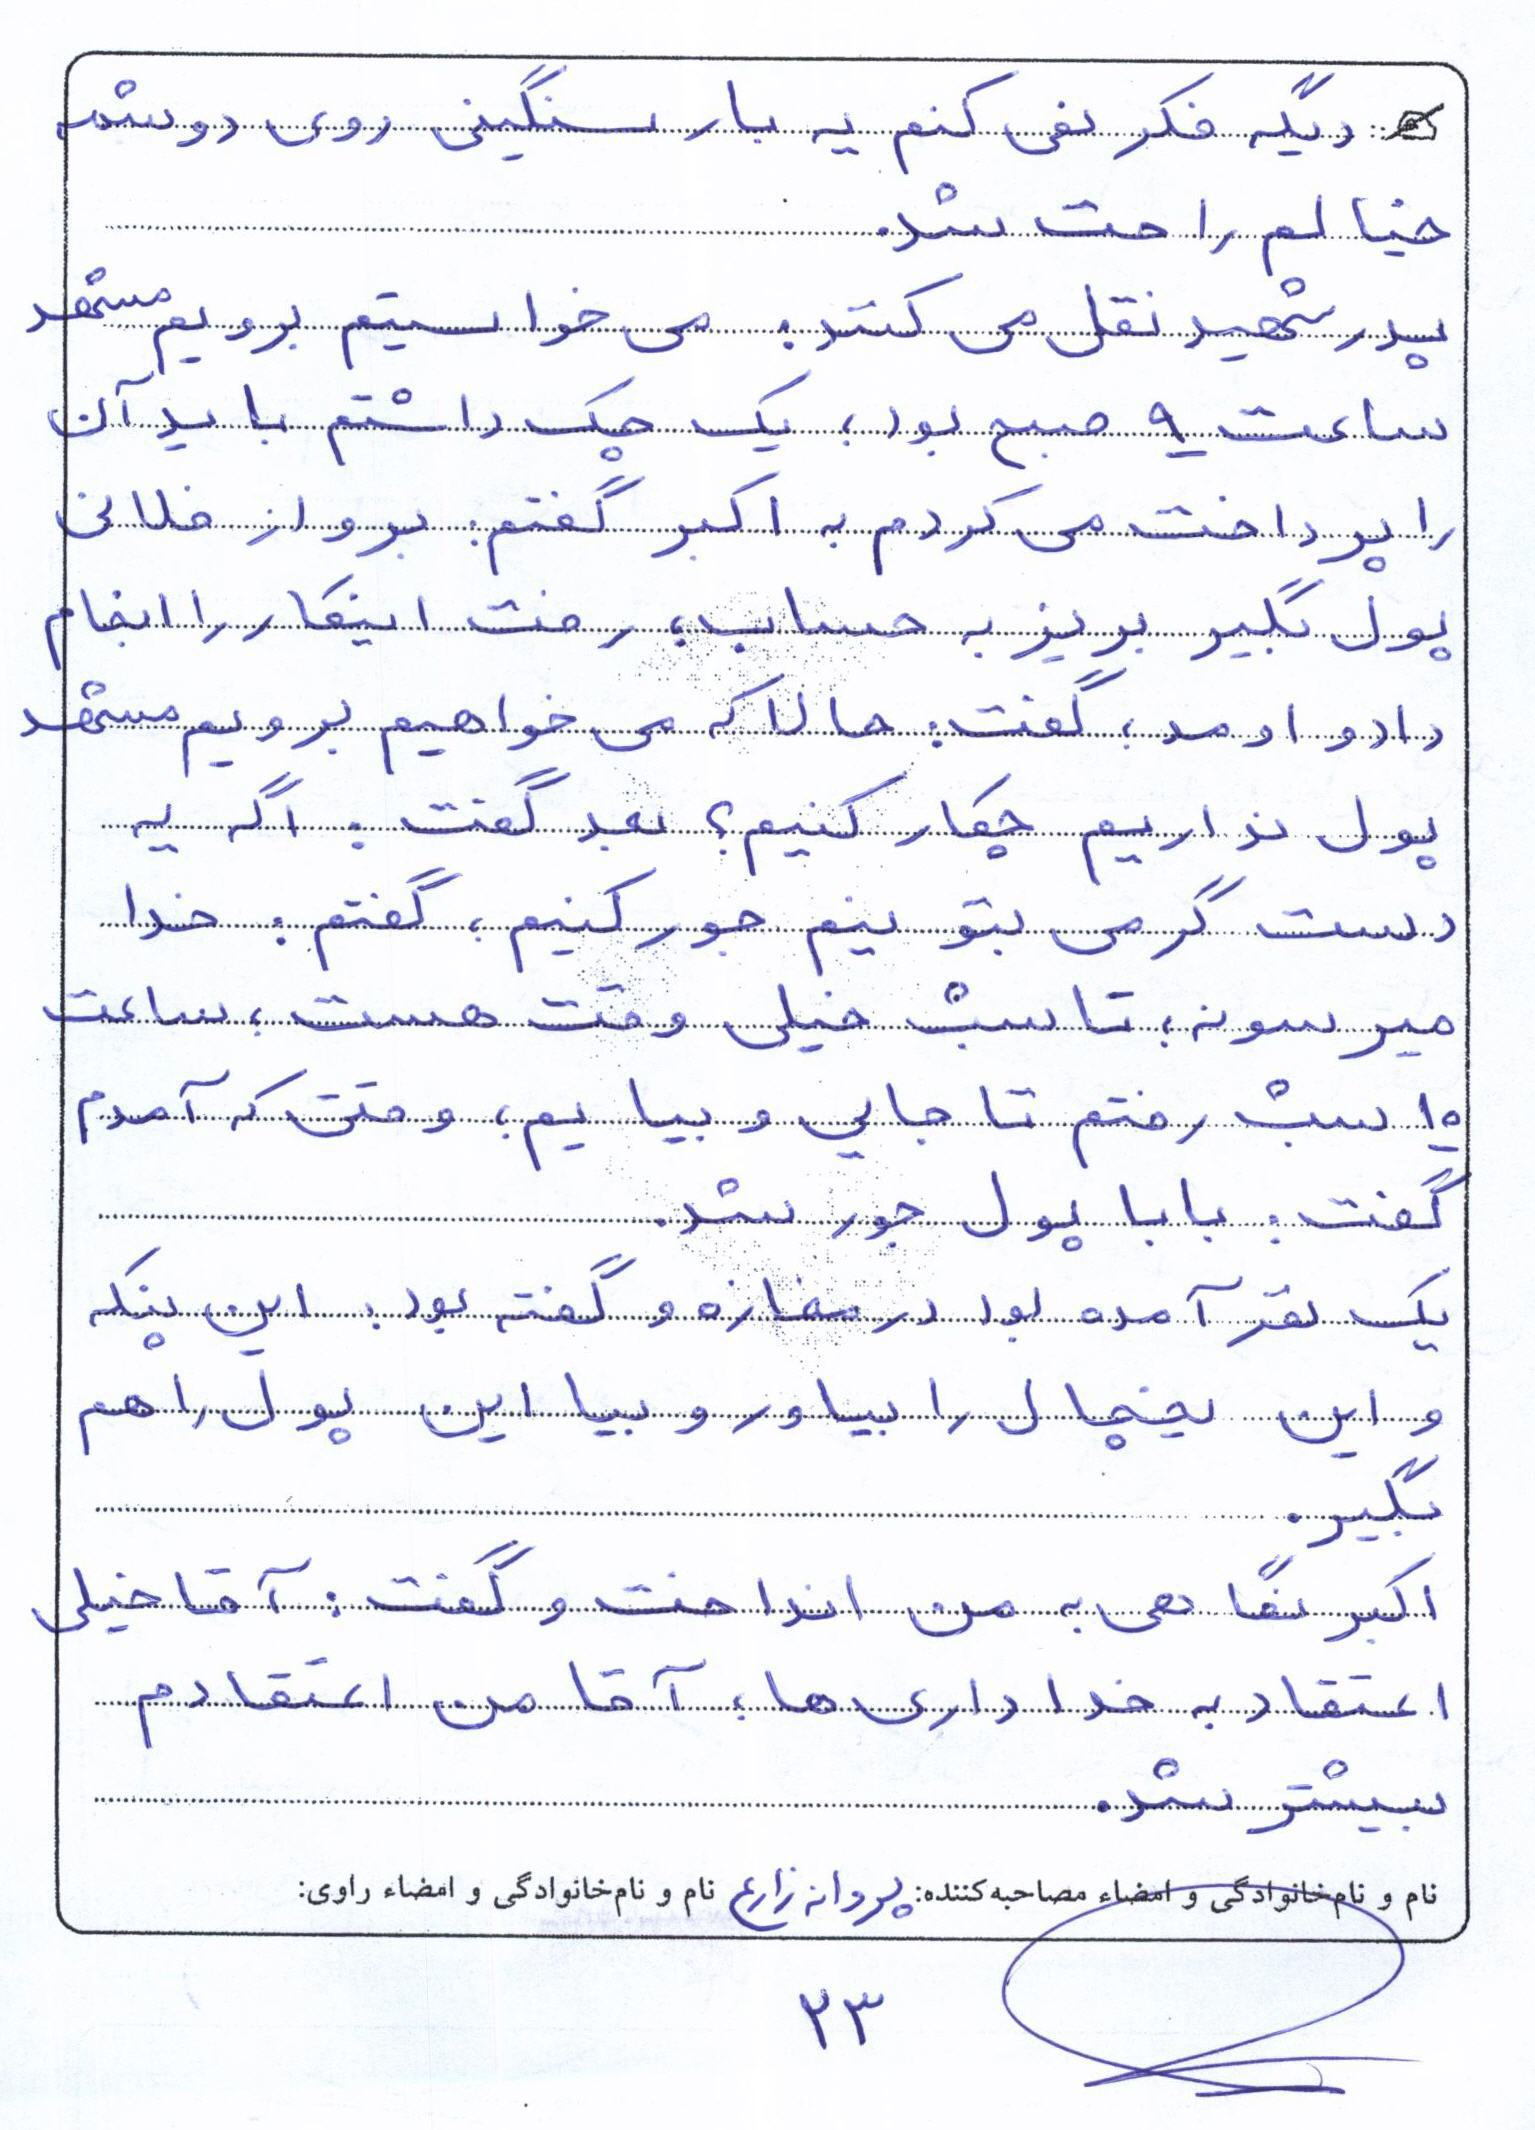 دیگه فکر نمی کنم یه بار سنگینی روی دوشمه
خیالم راحت شد.
پدر شهید نقل می کند: می خواستیم برویم مشهد
ساعت ۹ صبح بود؛ یک چک داشتم باید آن
را پرداخت می کردم به اکبر گفتم: برو از فلانی
پول بگیر بریز به حساب؛ رفت اینکار را انجام
داد و اومد؛ گفت: حالا که می خواهیم برویم مشهد
پول نداریم چکار کنیم؟ بعد گفت: اگه یه
دست گرمی بتونیم جور کنیم؛ گفتم: خدا
میرسونه؛ تا شب خیلی وقت هست؛ ساعت
۱۰ شب رفتم تا جایی و بیایم؛ وقتی که آمدم
گفت: بابا پول جور شد.
یک نفر آمده بود در مغازه و گفته بود: این پنکه
و این یخچال را بیاور و بیا این پول را هم
بگیر.
اکبر نگاهی به من انداخت و گفت: آقا خیلی
اعتقاد به خدا داری ها؛ آقا من اعتقادم
بیشتر شد.
نام و نام‌خانوادگی و امضاء مصاحبه‌کننده: پروانه زارع نام و نام‌خانوادگی و امضاء راوی:
۲۳